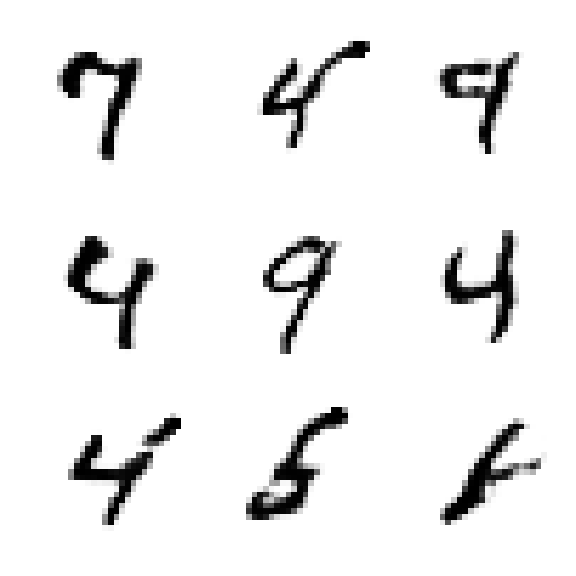 7 4 9
4 9 4
4 5